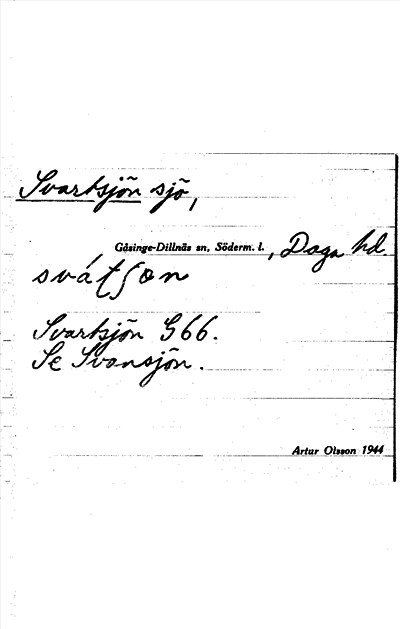 Svartsjön sjö,
Gåsinge-Dillnäs sn, Söderm. l., Daga hd.
svátʃөn
Svartsjön G66.
Se Svansjön.
Artur Olsson 1944